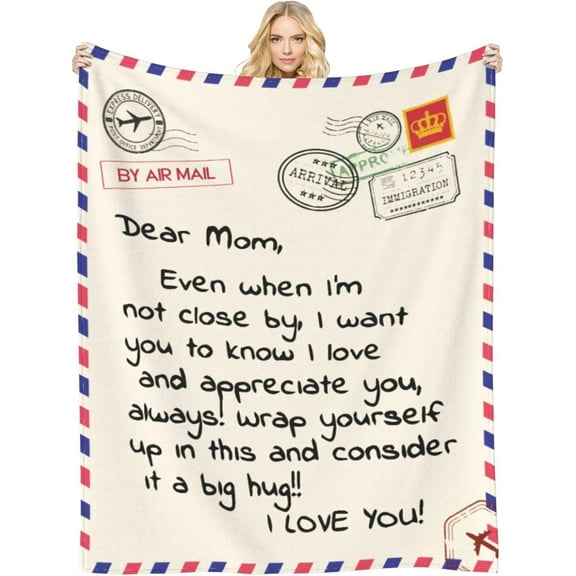 EXPRESS DELIVERY
POST OFFICE DEPARTMENT
AIR MAIL
BY AIR MAIL
ARRIVAL
12345
IMMIGRATION
Dear Mom,
Even when I'm
not close by, I want
you to know I love
and appreciate you,
always! Wrap yourself
up in this and consider
it a big hug!!
I LOVE YOU!